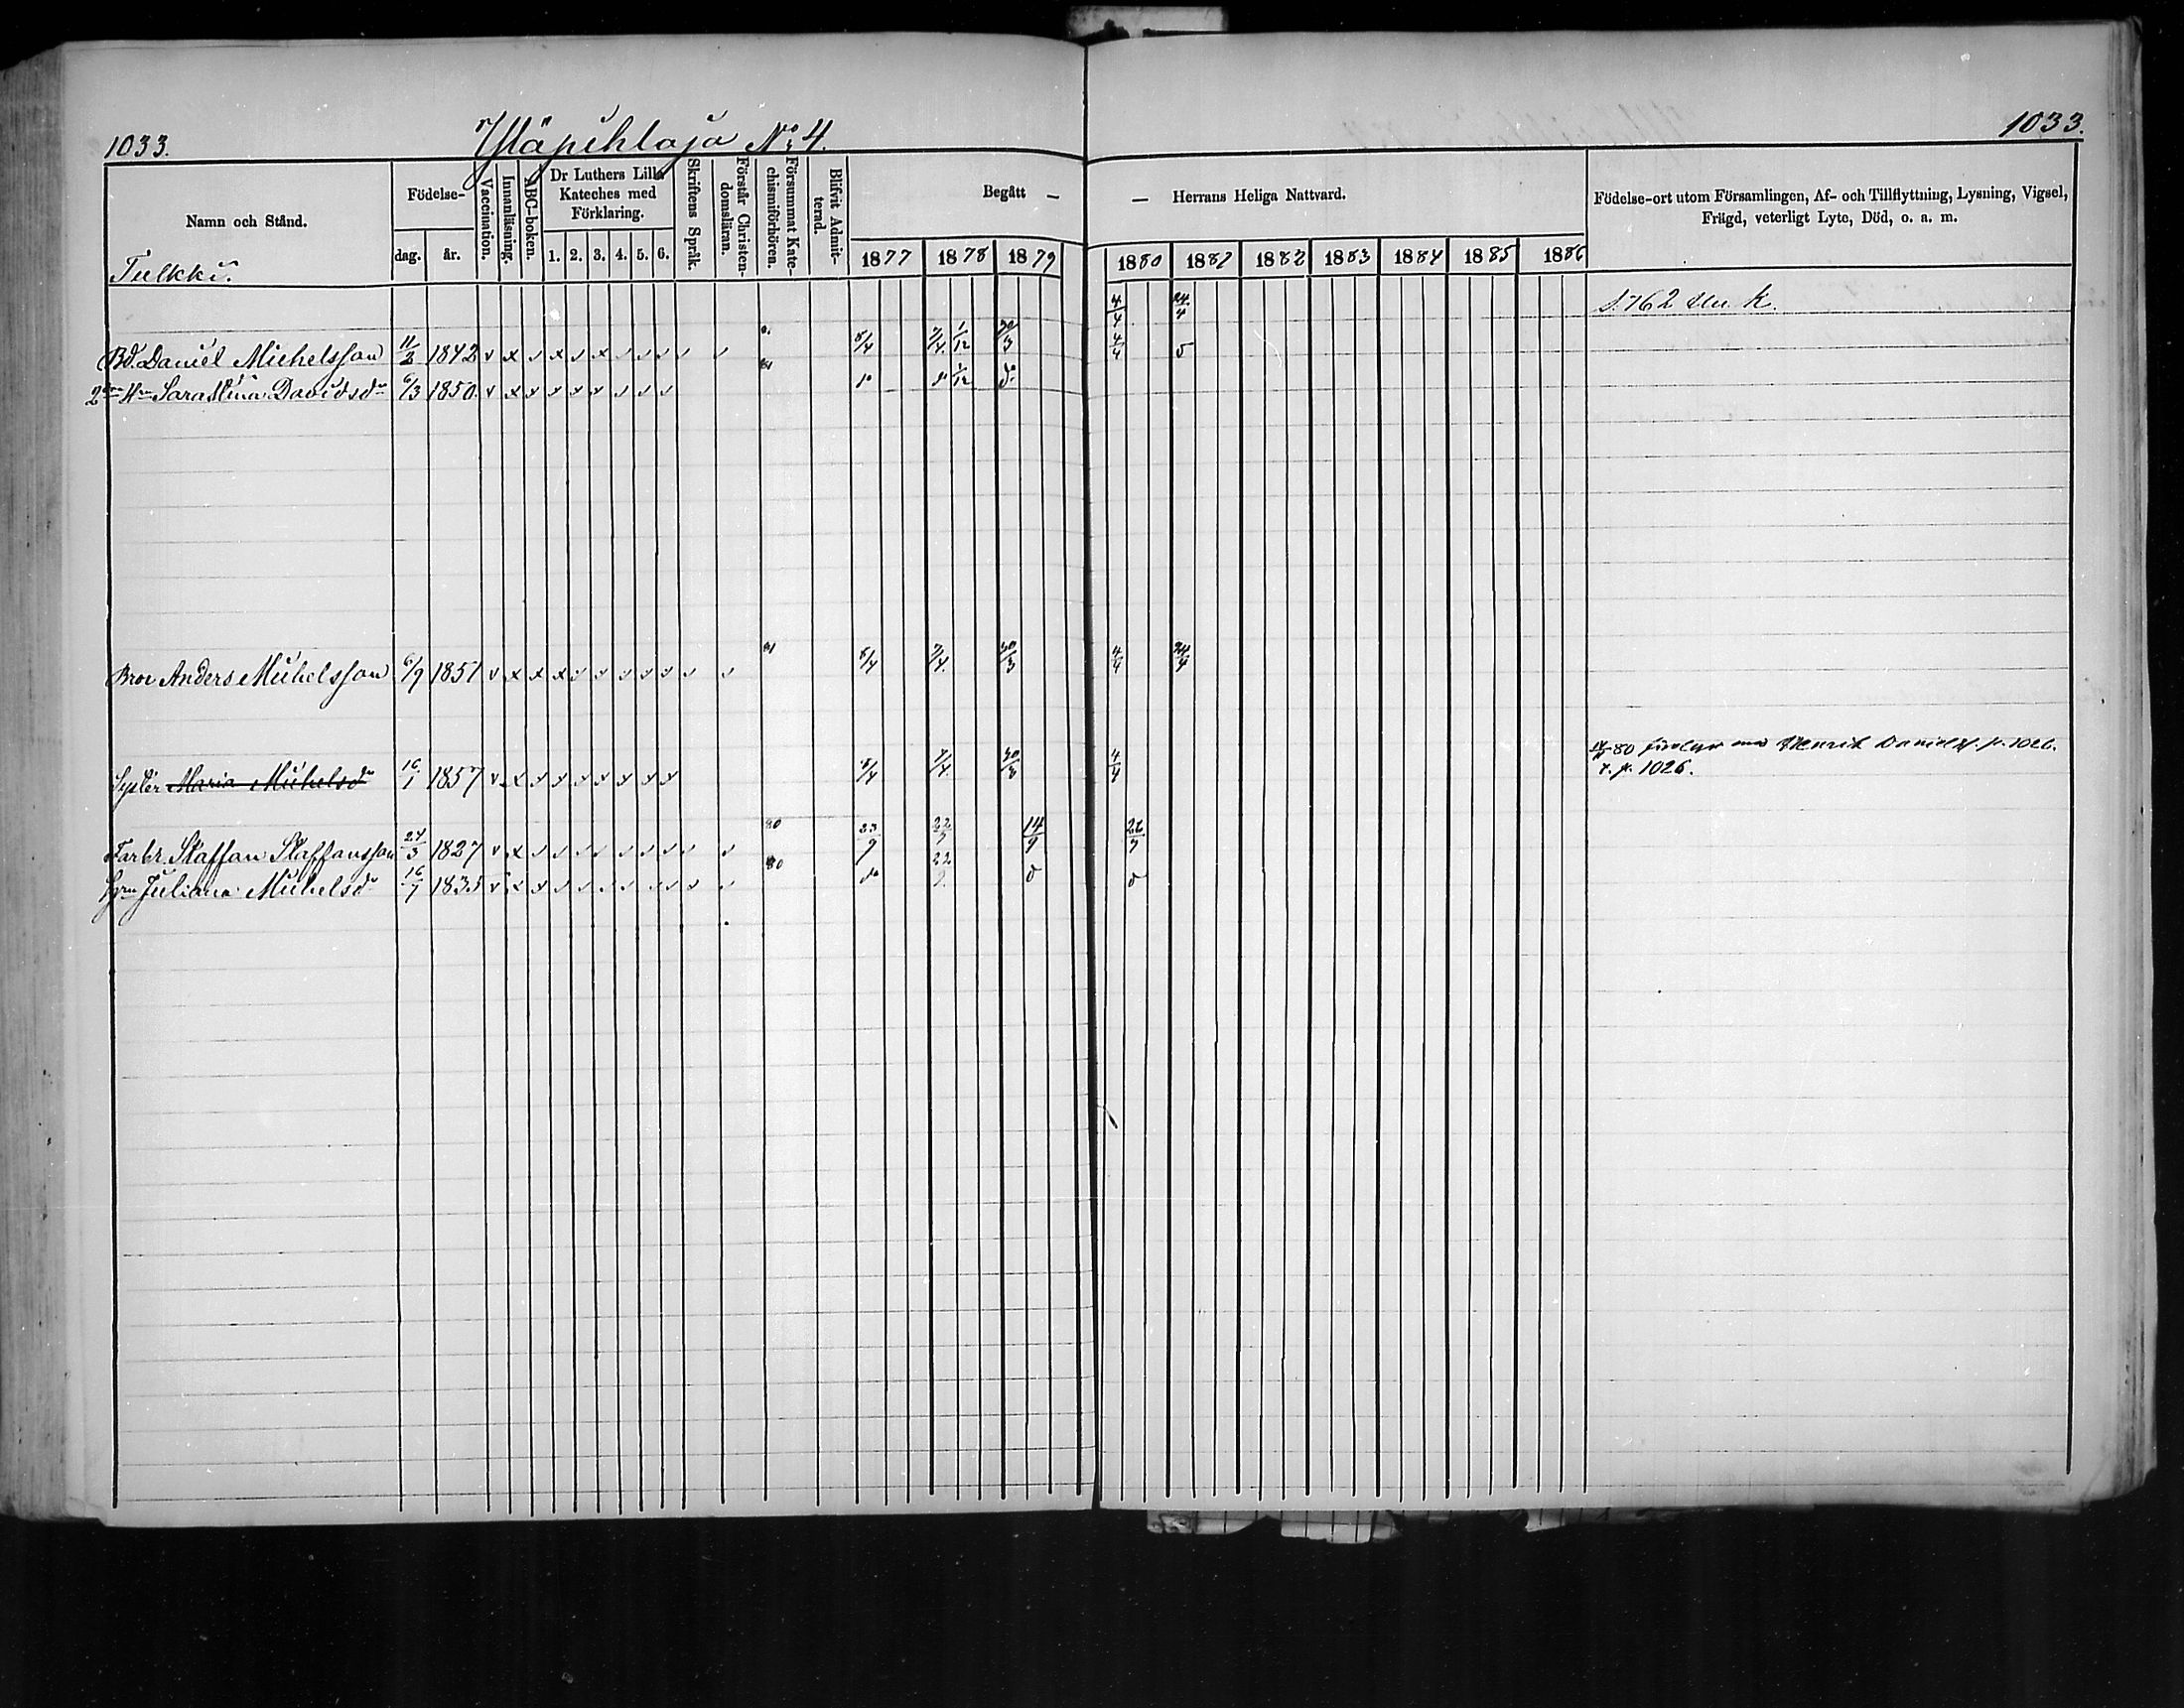 1033.
Yläpihlaja No 4.
1033.
Namn och Stånd.
Födelse-
dag. år.
Vaccination.
Innanläsning.
ABC-boken.
Dr Luthers Lilla Kateches med Förklaring.
1. 2. 3. 4. 5. 6.
Skriftens Språk.
Förstår Christen-domsläran.
Försummat Kate-chismiförhören.
Blifvit Admit-terad.
Begått —
1877 1878 1879
— Herrans Heliga Nattvard.
1880 1881 1882 1883 1884 1885 1886
Födelse-ort utom Församlingen, Af- och Tillflyttning, Lysning, Vigsel,
Frägd, veterligt Lyte, Död, o. a. m.
Tulkki.
4/4 24/4 S. 762 k.
Bd. Daniel Michelsson 11/2 1842 v x 5/4 7/4 1/12 30/3 4/4
2 Hu Sara Stina Davidsdr 6/3 1850 v x do 1/12 do
Bror Anders Michelsson 6/9 1851 v x x x 81 8/4 7/4 30/3 4/4 24/4
Syster Maria Michelsdr 16/1 1857 v x 8/4 7/4 30/3 4/4
80 med Henrik Daniels. p. 1026.
p. 1026.
Farbr. Staffan Staffansson 24/3 1827 v x 80 23/9 22/9 14/9 26/9
Hu Juliana Michelsdr 16/7 1835 v x x 80 do 22/9